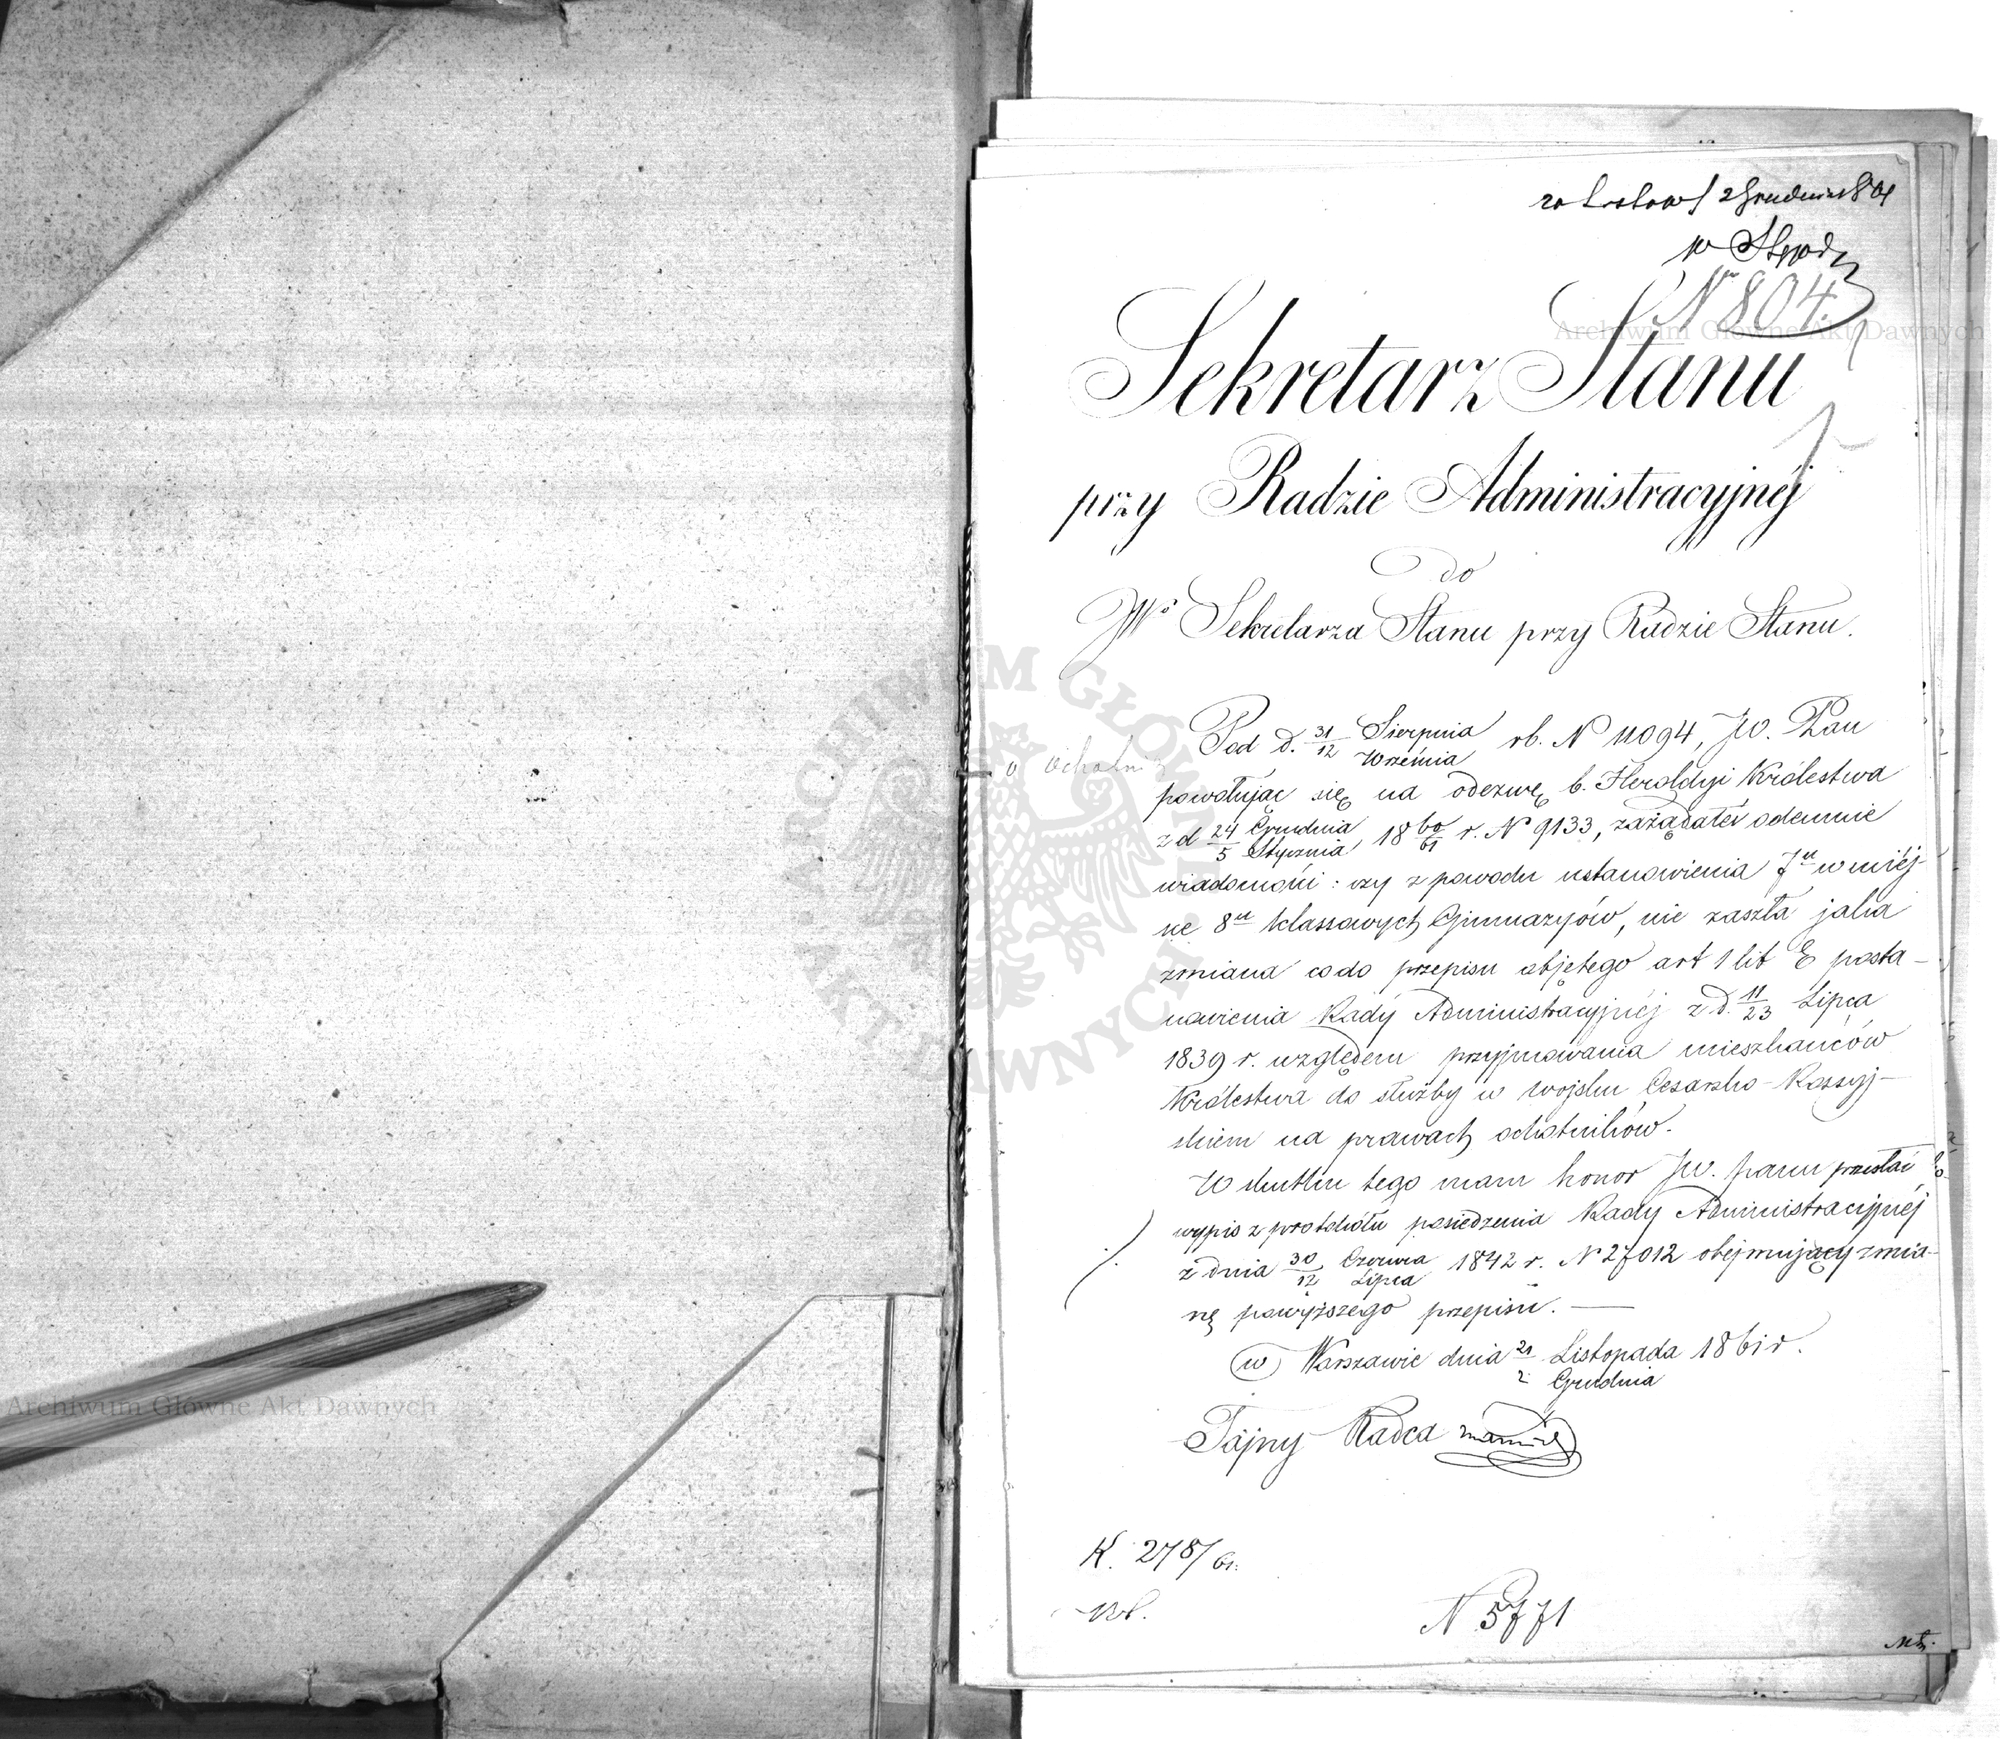 2 Grudnia 861
N 804.
Sekretarz Stanu
przy Radzie Administracyjnéj
do
JWo Sekretarza Stanu przy Radzie Stanu.
Pod d. 31/12 Sierpnia/Września rb. N 11094, JW. Pan
powołując się na odezwę b. Heroldyi Królestwa
z d 24/5 Grudnia/Stycznia 1860/61 r. N 9133, zażądałeś odemnie
wiadomości: czy z powodu ustanowienia 7u w miéj-
sce 8u klassowych Gimnazyów, nie zaszła jaka
zmiana co do przepisu objętego art 1 lit E posta-
nowienia Rady Administracyjnéj z d. 11/23 Lipca
1839 r. względem przyjmowania mieszkańców
Królestwa do służby w wojsku Cesarsko-Rossyj-
skiem na prawach ochotników.
W skutku tego mam honor JW. Panu przesłać
wypis z protokółu posiedzenia Rady Administracyjnéj
z dnia 30/12 Czerwca/Lipca 1842 r. N 27012 obejmujący zmia-
nę powyższego przepisu. —
w Warszawie dnia 21/2 Listopada/Grudnia 1861 r.
Tajny Radca
K. 278/61.
N 5771
Archiwum Główne Akt Dawnych
Archiwum Główne Akt Dawnych
ARCHIWUM GŁÓWNE AKT DAWNYCH